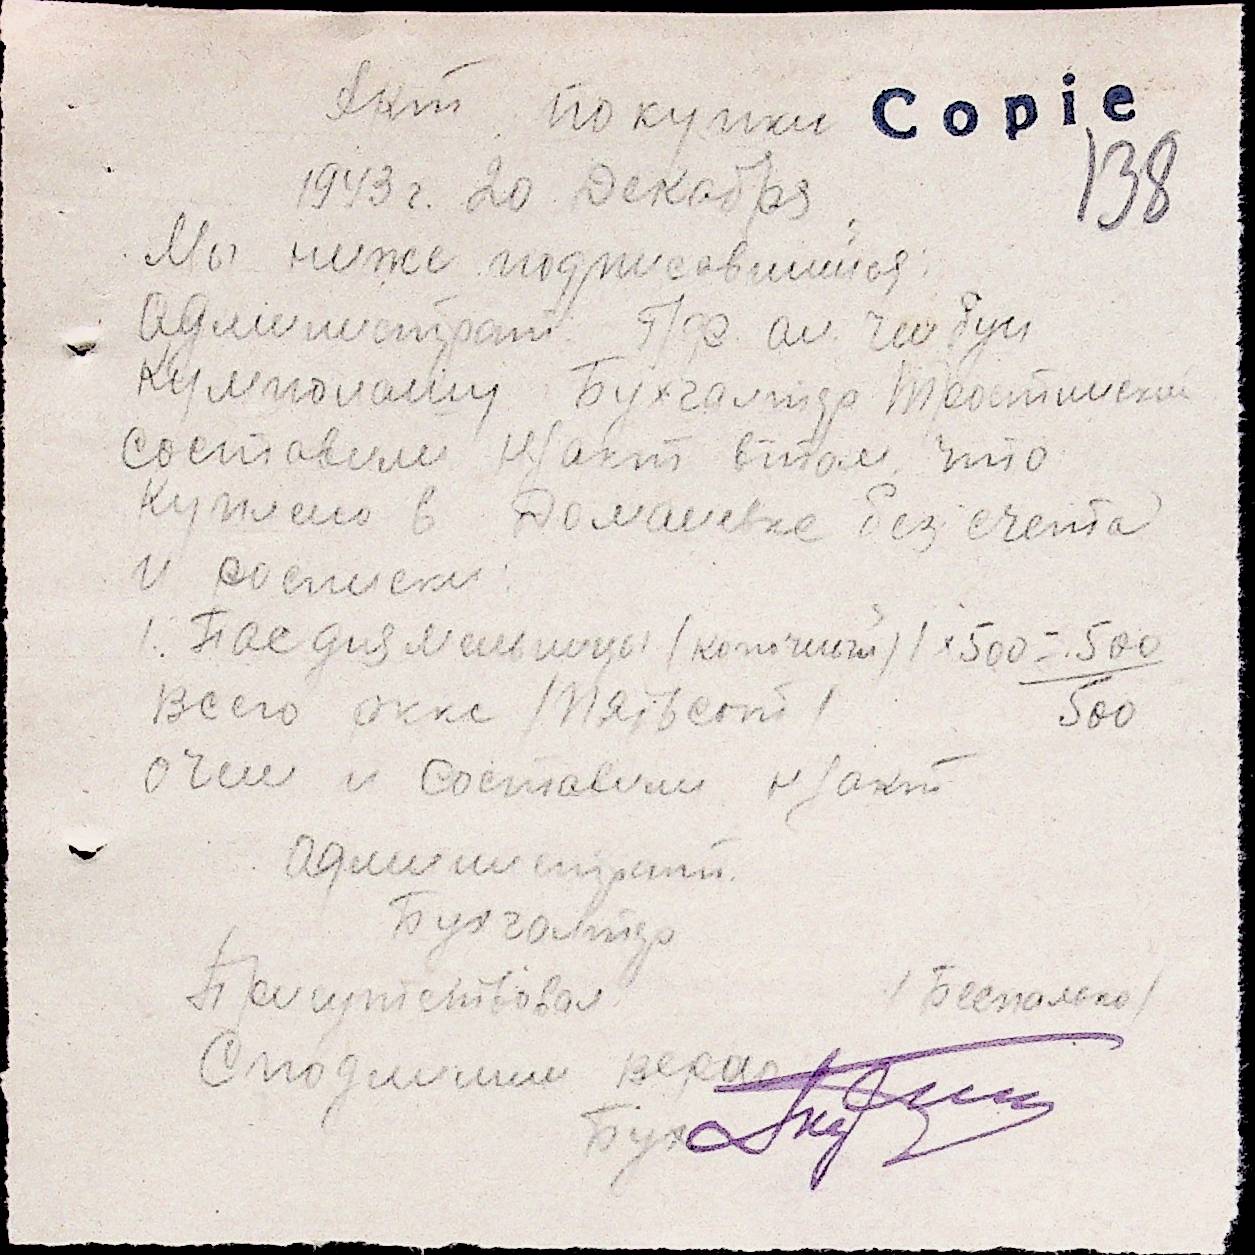 Акт покупки Copie
138
1943 г. 20 Декабря
Мы ниже подписавшийся:
Администрат. П/Ф
Бухгалтер
составили н/акт втом что
Куплено в Доманевке без счета
и росписки:
1. Пас для мельницы (конčный) 1 × 500 = 500
всего окке /Пятьсот/ 500
очем и составили н/акт
Администрат.
Бухгалтер
Присутствовал /Беспалько/
Сподлиным верно
Бух